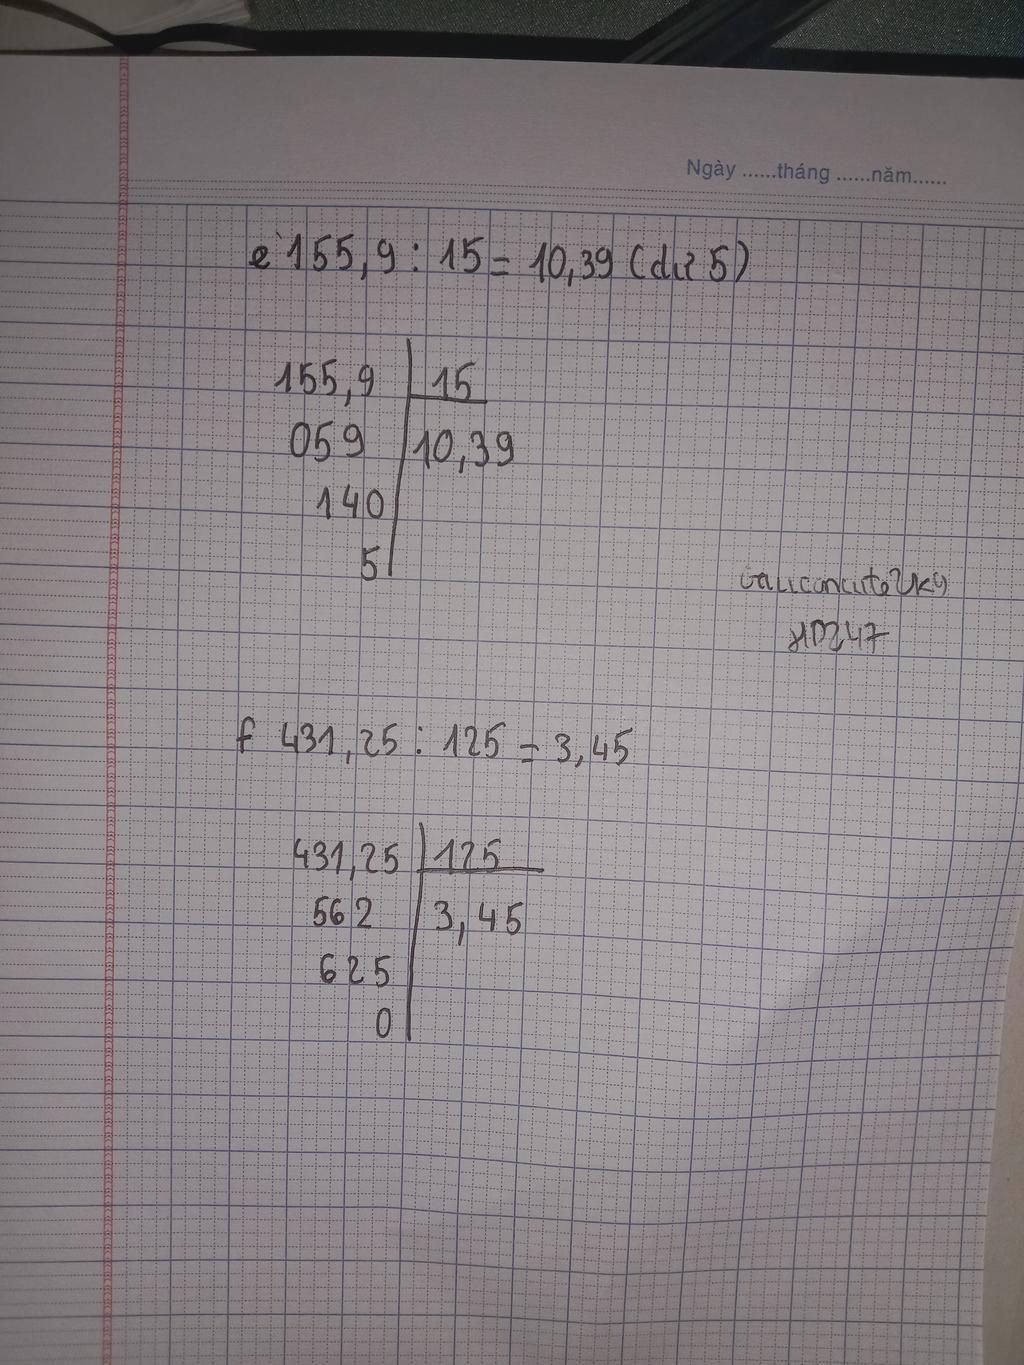 Ngày ......tháng ......năm......
e 155,9 : 15 = 10,39 (dư 5)
155,9 15
059 10,39
140
5
f 431,25 : 125 = 3,45
431,25 125
562 3,45
625
0